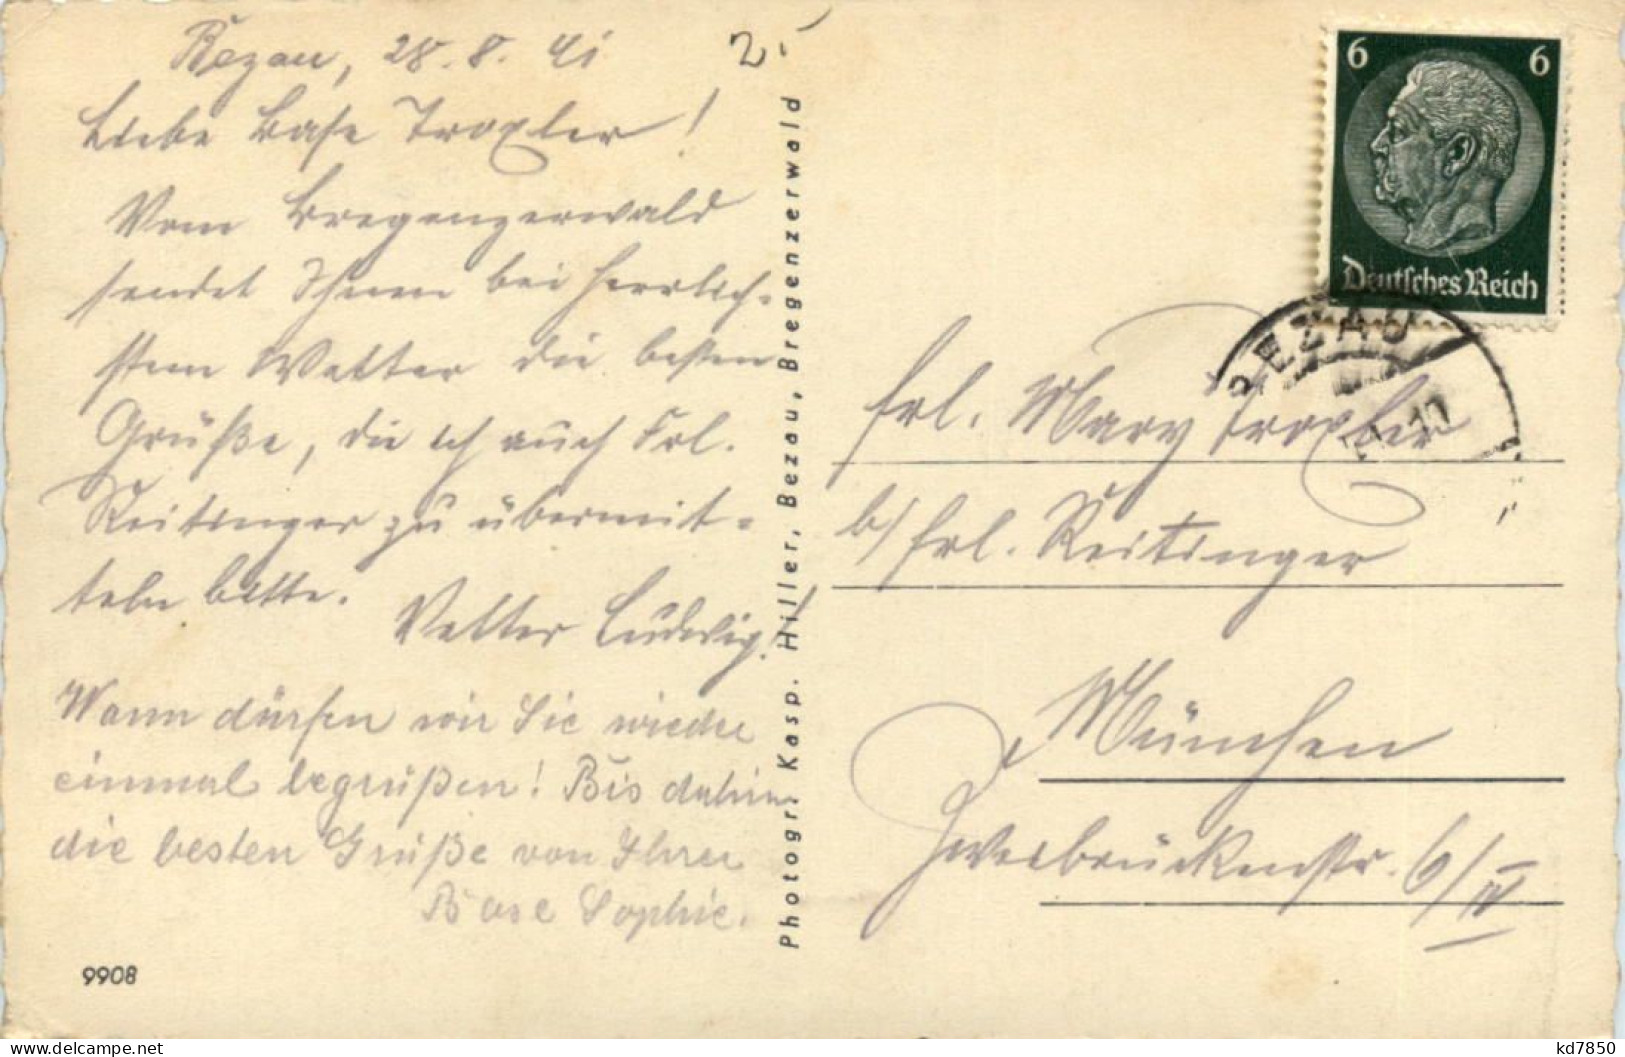 Bezau, 28.8.41
Liebe Base Troxler!
Vom Bregenzerwald
sendet Ihnen bei herrlich-
stem Wetter die besten
Grüße, die ich auch Frl.
Reitinger zu übermit-
teln bitte.
Vetter Ludwig!
Wann dürfen wir Sie wieder
einmal begrüßen! Bis dahin
die besten Grüße von Ihrer
Base Sophie.
9908
2.
Photogr. Kasp. Hiller, Bezau, Bregenzerwald
6 6
Deutsches Reich
BEZAU
10
Frl. Mary Troxler
b/ Frl. Reitinger
München
Zweibrückenstr. 6/IV
kd7850